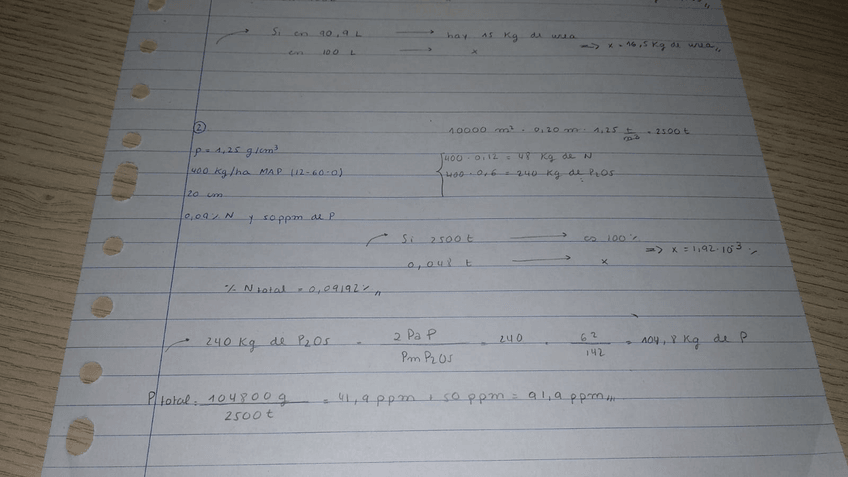 Si en 90,9 L → hay 15 Kg de urea
en 100 L → x => x = 16,5 Kg de urea,,
②
ρ = 1,25 g/cm³
400 Kg/ha MAP (12-60-0)
20 cm
0,09% N y 50 ppm de P
10000 m² · 0,20 m · 1,25 t/m³ = 2500 t
400 · 0,12 = 48 Kg de N
400 · 0,6 = 240 Kg de P2O5
Si 2500 t → es 100%
0,048 t → x => x = 1,92·10⁻³ %
% N total = 0,09192%,,
240 Kg de P2O5 = 2 Pa P / Pm P2O5 = 240 · 62 / 142 = 104,8 Kg de P
P total = 104800 g / 2500 t = 41,9 ppm + 50 ppm = 91,9 ppm,,,